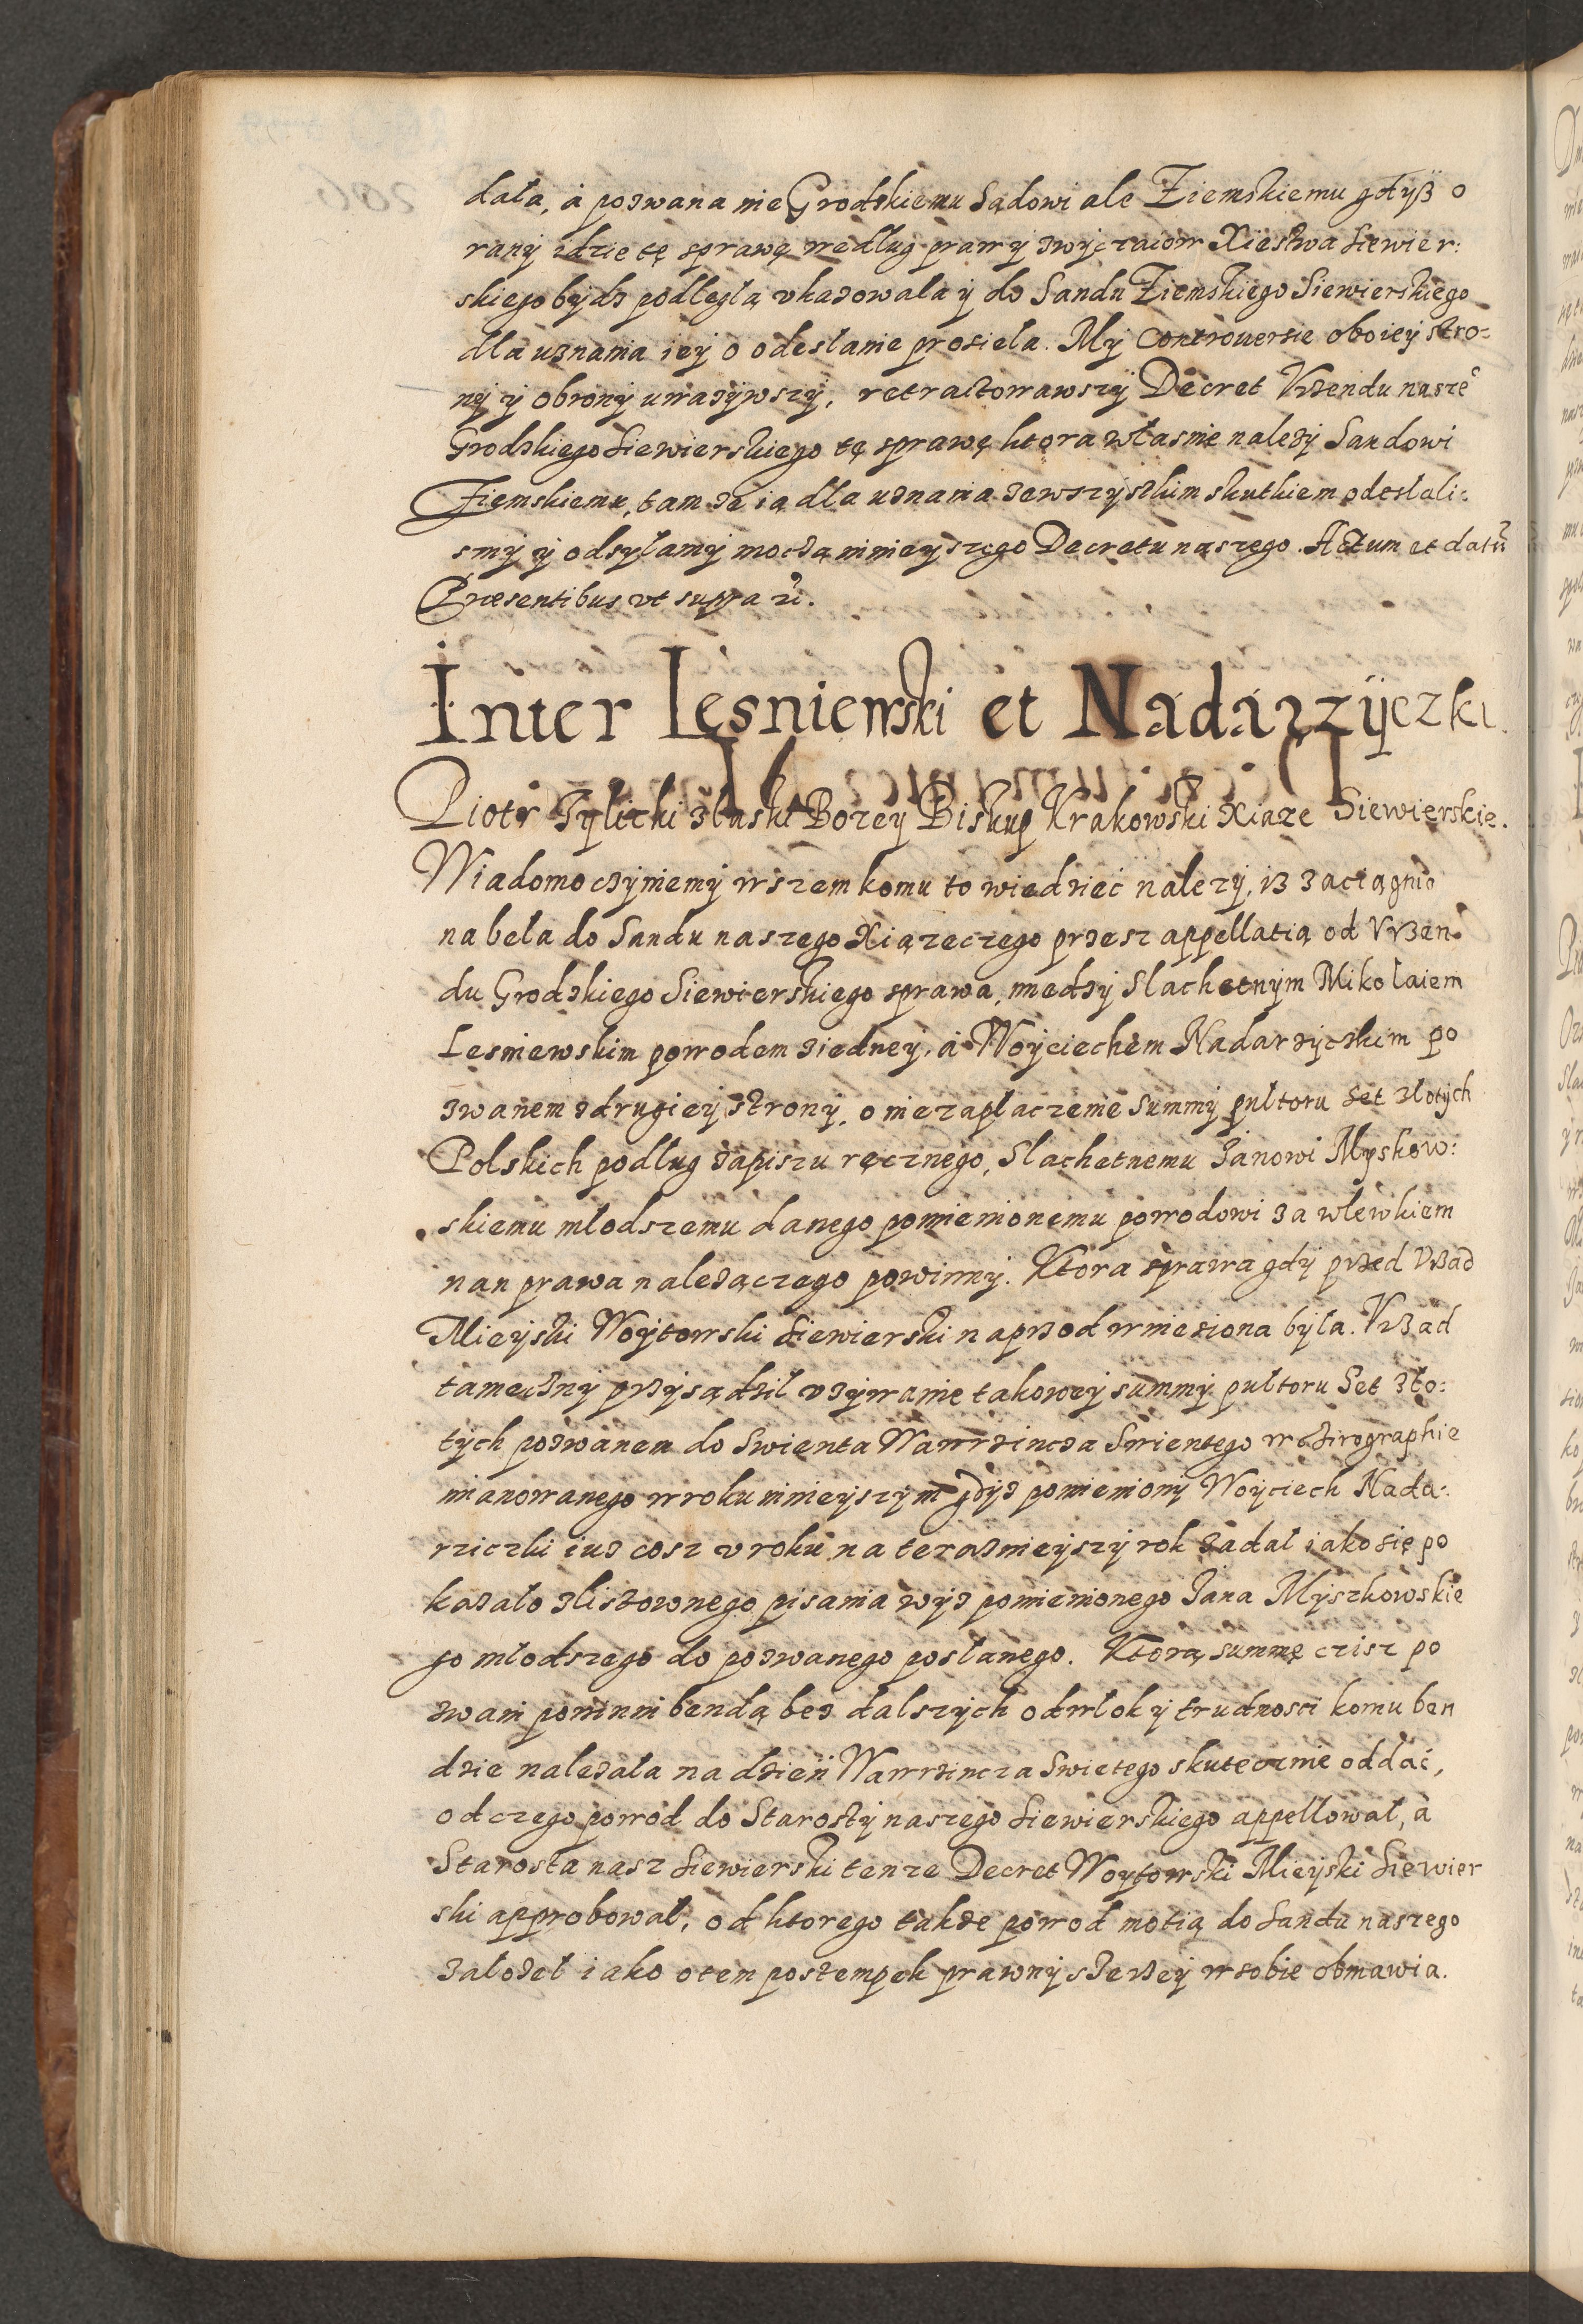 dała, á pozwana nie Grodzkiemu Sądowi ale Ziemskiemu gdyß o
rany idzie tę sprawę według praw y zwyczaiow Xiestwa Siewier:
skiego bydz podległą vkazowała y do Sandu Ziemskiego Siewierskiego
dla uznania iey o odesłanie prosieła. My Controuersie oboiey stro=
ny y obrony uwazywszy, retractowawszy Decret Vrzendu nasze°
Grodzkiego Siewierskiego tę sprawę ktora własnie nalezy Sandowi
Ziemskiemu, tamze ią dla uznania zewszystkim skutkiem odesłali:
smy y odsyłamy moczą ninieyszego Decretu naszego. Actum et datū
Præsentibus vt supra rc.
Inter Lesniewski et Nadarzyczki.
Piotr Tylicki z łaski Bozey Biskup Krakowski Xiaze Siewierskie.
Wiadomo czyniemy wszem komu to wiedziec nalezy, iz zaciągnio
na beła do Sandu naszego Xiązeczego przesz appellatią od Vrzen
du Grodzkiego Siewierskiego sprawa, miedzy Slachetnym Mikołaiem
Lesniewskim powodem ziedney, á Woyciechem Nadarzyczkim po
zwanem zdrugiey strony, o niezapłaczenie Summy pułtoru Set złotych
Polskich podług zapiszu ręcznego, Slachetnemu Janowi Myskow:
skiemu młodszemu danego pomienionemu powodowi za wlewkiem
nan prawa nalezączego powinny. Ktora sprawa gdy przed Vrzad
Mieyski Woytowski Siewierski naprzod wniesiona była. Vrzad
tameczny przysądził vzywanie takowey summy pułtoru Set zło:
tych pozwanem do Swienta Wawrzincza Swientego w chirographie
mianowanego w roku ninieyszym gdyz pomieniony Woyciech Nada:
rziczki iuz cosz v roku na teraznieyszy rok zadał iako się po
kazało z listownego pisania wyz pomienionego Jana Myszkowskie
go młodszego do pozwanego posłanego. Ktorą summę czisz po
zwani powinni bendą bez dalszych odwłok y trudnosci komu ben
dzie nalezała na dzień Wawrzincza Swietego skutecznie oddać,
od czego powod do Starosty naszego Siewierskiego appellował, a
Starosta nasz Siewierski tenze Decret Woytowski Mieyski Siewier
ski approbował, od ktorego takze powod motią do Sandu naszego
załozeł iako o tem postempek prawny szerzey w sobie obmawia.